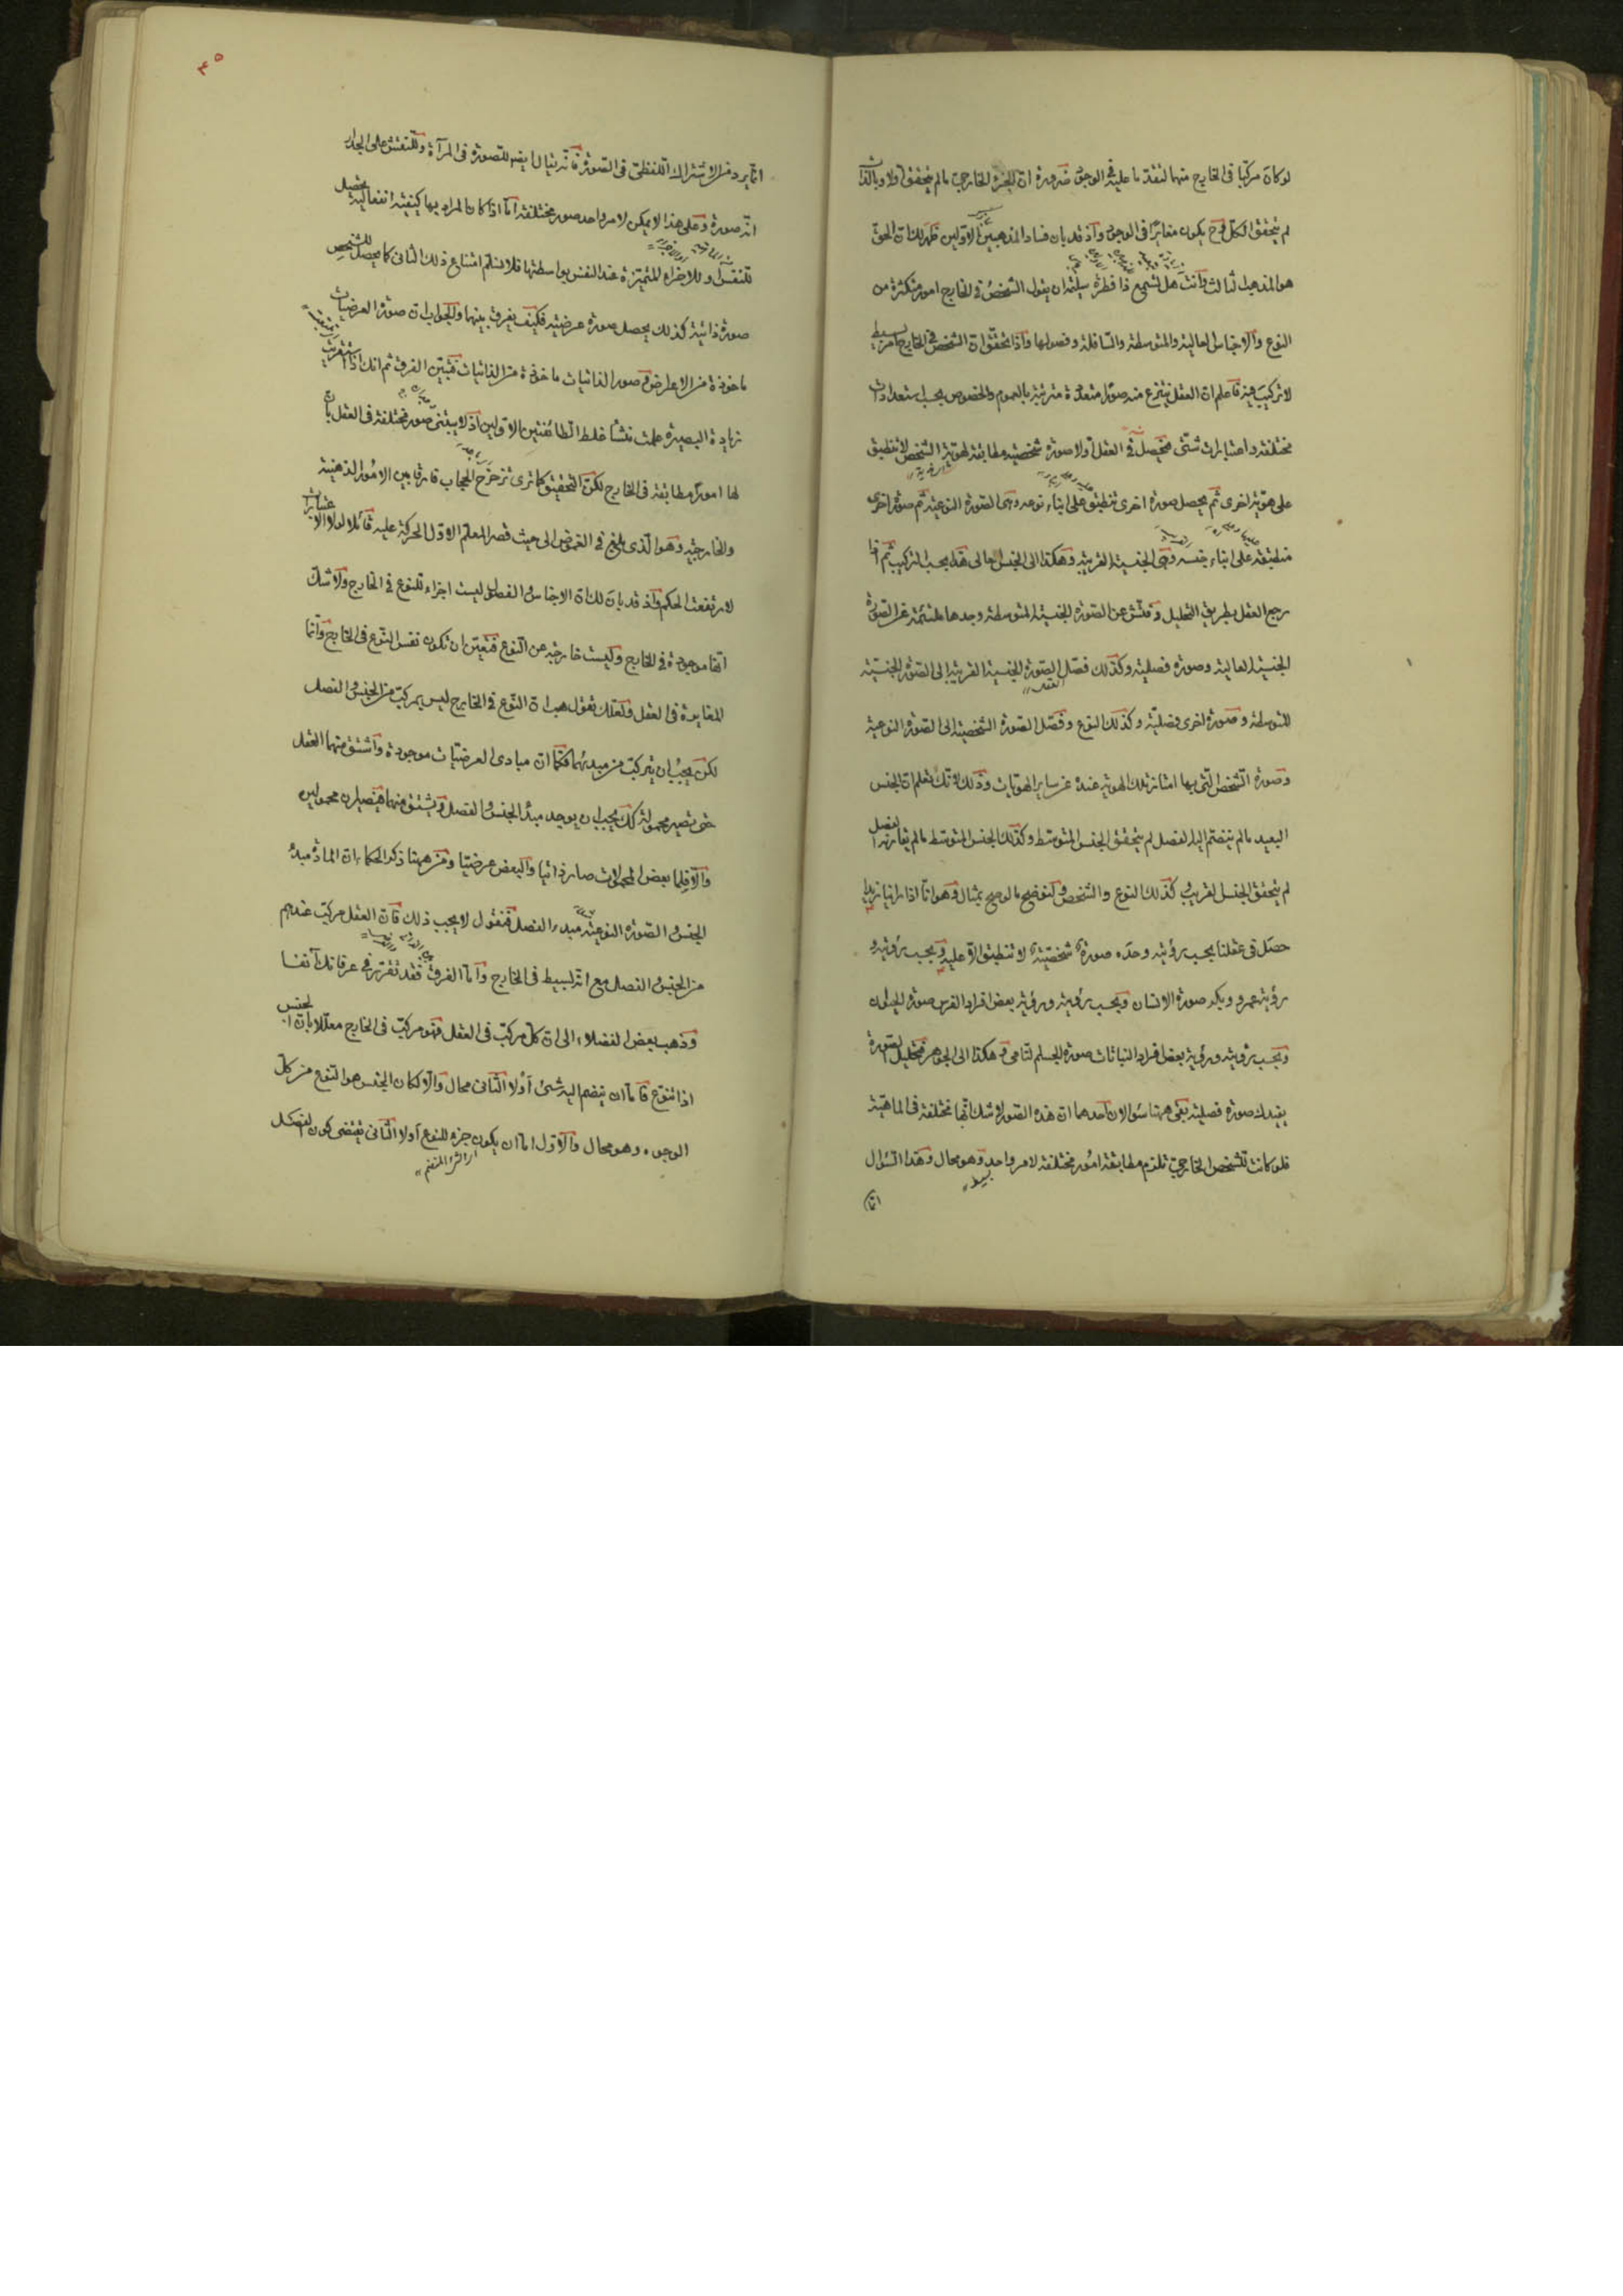 لو كان مركبا فى الخارج منهما لتقدما عليه فى الوجود ضرورة ان الجزء الخارجى مالم يتحقق اولا وبالذات
لم يتحقق الكل وح يكون مغايرا فى الوجود واذ قد بان فساد المذهبين الاولين ظهر لك ان الحق
هو المذهب الثالث وانت هل تسمع ذا فطرة سليمة ان يقول الشخص فى الخارج امور متكثرة من
النوع والاجناس العالية والمتوسطة والسافلة وفصولها واذا تحقق ان الشخص فى الخارج امر بسيط
لا تركيب فيه فاعلم ان العقل ينتزع منه صورا متعددة مترتبة بالعموم والخصوص بحسب استعدادات
مختلفة واعتبارات شتى فيحصل فى العقل اولا صورة شخصية مطابقة لهوية الشخص لا تنطبق
على هوية اخرى ثم يحصل صورة اخرى تنطبق على ابناء نوعه وهى الصورة النوعية ثم صورة اخرى
منطبقة على ابناء جنسه وهى الجنسية القريبة وهكذا الى الجنس العالى هذا بحسب التركيب ثم اذا
رجع العقل بطريق التحليل وفتش عن الصورة الجنسية المتوسطة وجدها ملتئمة عن الصورة
الجنسية العالية وصورة فصلية وكذلك فصل الصورة الجنسية القريبة الى الصورة الجنسية
المتوسطة وصورة اخرى فصلية وكذلك النوع وفصل الصورة الشخصية الى الصورة النوعية
وصورة الشخص التى بها امتاز تلك الهوية عنده عن ساير الهويات وذلك لانك تعلم ان الجنس
البعيد مالم ينضم اليه الفصل لم يتحقق الجنس المتوسط وكذلك الجنس المتوسط مالم يقارنه الفصل
لم يتحقق الجنس القريب كذلك النوع والشخص ولنوضح ما لوح بمثال وهو انا اذا راينا زيدا
حصل فى عقلنا بحسب رؤيته وحده صورة شخصية لا تنطبق الا عليه وبحسب رؤيته و
رؤية عمرو وبكر صورة الانسان وبحسب رؤيته ورؤية بعض افراد الفرس صورة الحيوان
وبحسب رؤيته ورؤية بعض افراد النباتات صورة الجسم النامى وهكذا الى الجوهر فتحليل الصورة
يفيدك صورة فصلية بقى ههنا سؤالان احدهما ان هذه الصور لا شك انها مختلفة فى الماهية
فلو كانت للشخص الخارجى تلزم مطابقة امور مختلفة لامر واحد وهو محال وهذا السؤال
بسيط
انما يرد من الاشتراك اللفظى فى الصورة فانه يقال ايضا للصورة فى المرآة وللنقش على الجدار
انه صورة وعلى هذا لا يمكن لامر واحد صور مختلفة اما اذا كان المراد بها كيفية انفعالية يحصل
للنفس او للاجزاء المتميزة عند النفس بواسطتها فلا نسلم امتناع ذلك الثانى كما يحصل للشخص
صورة ذاتية كذلك يحصل صورة عرضية فكيف يفرق بينهما والجواب ان صورة العرضيات
ماخوذة من الاعراض وصور الذاتيات ماخوذة من الذاتيات فتبين الفرق ثم انك اذا استقريت
زيادة البصيرة علمت منشأ غلط الطائفتين الاوليين اذ لا يبتنى صور مختلفة فى العقل بان
لها امورا مطابقة فى الخارج لكن التحقيق كما ترى تزحزح الحجاب فارقا بين الامور الذهنية
والخارجية وهو الذى بلغ فى الغموض الى حيث قصر المعلم الاول الحركة عليه قائلا لولا الاعتبارات
لارتفعت الحكمة واذ قد بان لك ان الاجناس والفصول ليست اجزاء للنوع فى الخارج ولا شك
انها موجودة فى الخارج وليست خارجة عن النوع فتعين ان تكون نفس النوع فى الخارج وانما
المغايرة فى العقل ولعلك تقول هب ان النوع فى الخارج ليس بمركب من الجنس والفصل
لكن يجب ان يتركب من مبديهما فكما ان مبادى العرضيات موجودة واشتق منها العقل
حتى تصير محمولة كك يجب ان يوجد مبدأ الجنس والفصل ويشتق منهما فيصيران محمولين
والا فلما بعض المحمولات صار ذاتيا والبعض عرضيا ومن ههنا ذكر الحكماء ان المادة مبدء
الجنس والصورة النوعية مبدء الفصل فنقول لا يجب ذلك فان العقل مركب عندهم
من الجنس والفصل مع انه بسيط فى الخارج واما الفرق فقد تقرر فى عرفانك آنفا
وذهب بعض الفضلاء الى ان كل مركب فى العقل فهو مركب فى الخارج معللا بان الجنس
اذا تنوع فاما ان ينضم اليه شئ اولا الثانى محال والا لكان الجنس هو النوع من كل
الوجوه وهو محال والاول اما ان يكون جزء للنوع اولا الثانى يقتضى كون الفصل